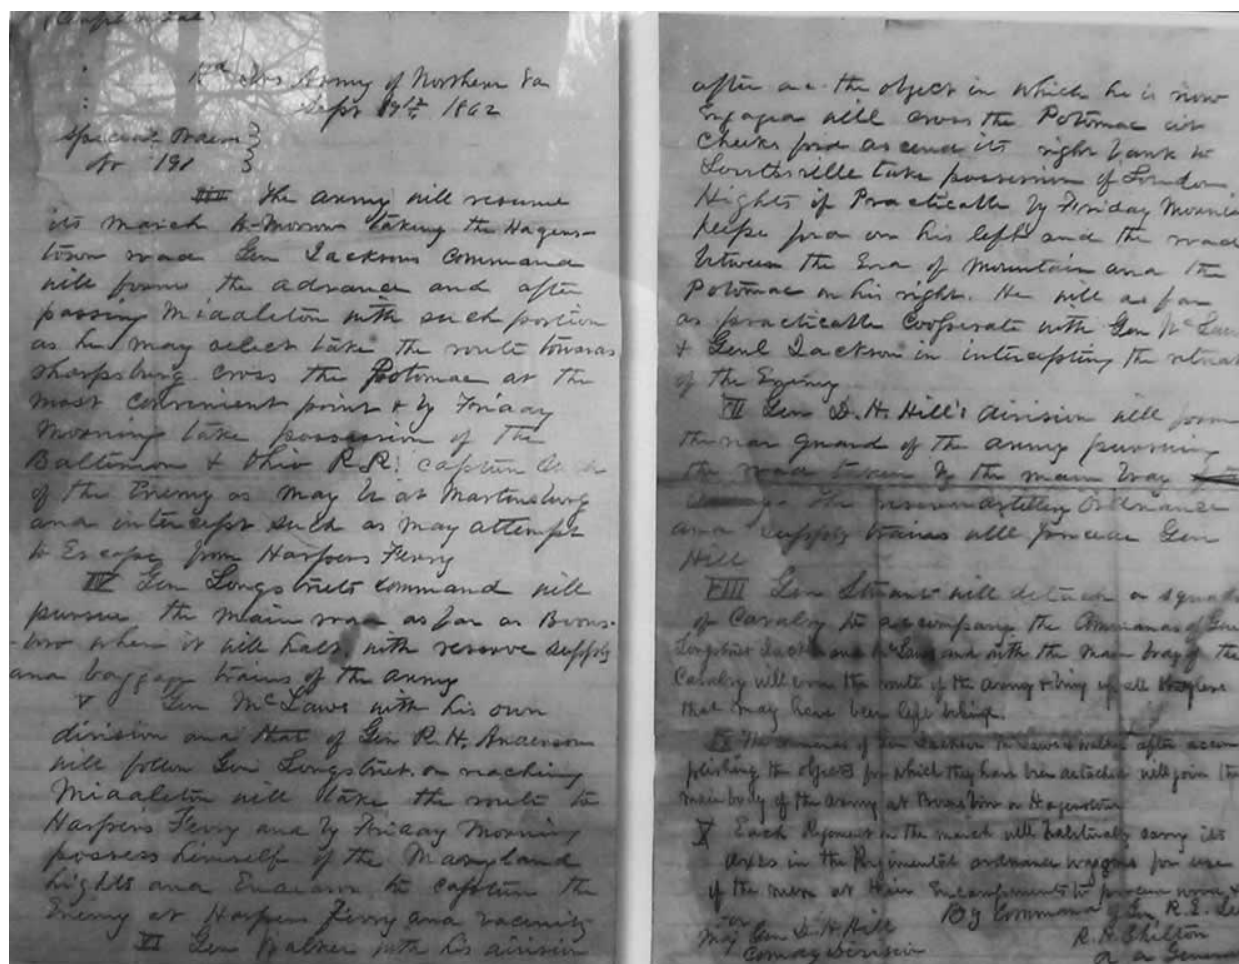 (Confidential)
Hd Qrs Army of Northern Va
Sept 9th 1862
Special Orders }
No 191 }
III The army will resume
its march to-morrow taking the Hagers-
town road Gen Jacksons Command
will form the advance and after
passing Middleton with such portion
as he may select take the route towards
Sharpsburg cross the Potomac at the
most convenient point & by Friday
Morning take possession of the
Baltimore & Ohio R.R. capture such
of the Enemy as may be at Martinsburg
and intercept such as may attempt
to Escape from Harpers Ferry
IV Gen Longstreets command will
pursue the main road as far as Boons-
-boro where it will halt. with reserve supply
and baggage trains of the army
V Gen McLaws with his own
division and that of Gen R.H. Anderson
will follow Gen Longstreet. on reaching
Middleton will take the route to
Harpers Ferry and by Friday Morning
possess himself of the Maryland
hights and Endeavor to capture the
Enemy at Harpers Ferry and vacinity
VI Gen Walker with his division
after acc the object in which he is now
Engaged will cross the Potomac at
Cheeks ford ascend its right bank to
Lovettsville take possession of Loudon
Hights if Practicable by Friday Morning
Keeps ford on his left and the road
between the End of Mountain and the
Potomac on his right. He will as far
as practicable cooperate with Gen McLaws
& Genl Jackson in intercepting the retreat
of the Enemy
VII Gen D. H. Hill's division will form
the rear guard of the army pursuing
the road taken by the main body
The reserve artillery Ordnance
and supply trains will precede Gen
Hill
VIII Gen Stuart will detach a squadron
of Cavalry to accompany the Commands of Gen
Longstreet Jackson and McLaws and with the main body of the
Cavalry will cover the route of the army & bring up all straglers
that may have been left behind.
IX The commands of Gen Jackson McLaws & Walker after accom
plishing the objects for which they have been detached will join the
main body of the army at Boonsboro or Hagerstown
X Each Regiment on the march will habitually carry its
axes in the Regimental ordnance waggons for use
of the men at their Encampments to procure wood &
By Command of Gen R. E. Lee
For
Maj Gen D. H. Hill
R. H. Chilton
Comdg Division
A A General